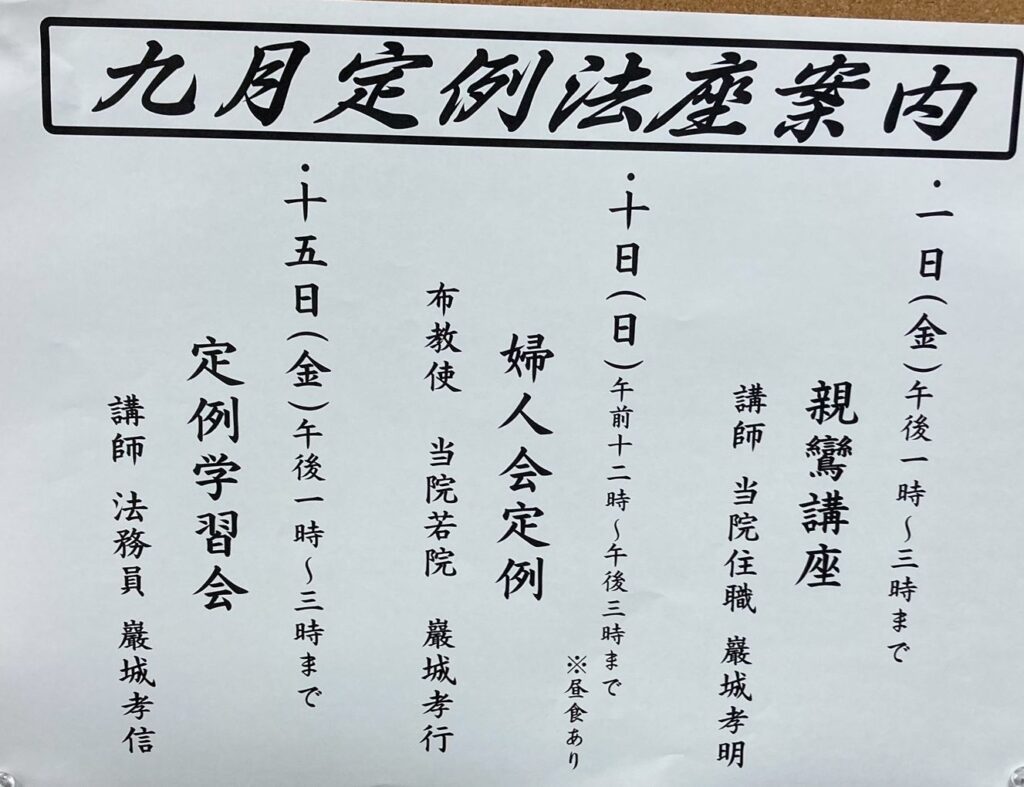 九月定例法座案内
・一日(金)午後一時～三時まで
親鸞講座
講師 当院住職 巖城孝明
・十日(日)午前十二時～午後三時まで
※昼食あり
婦人会定例
布教使 当院若院 巖城孝行
・十五日(金)午後一時～三時まで
定例学習会
講師 法務員 巖城孝信